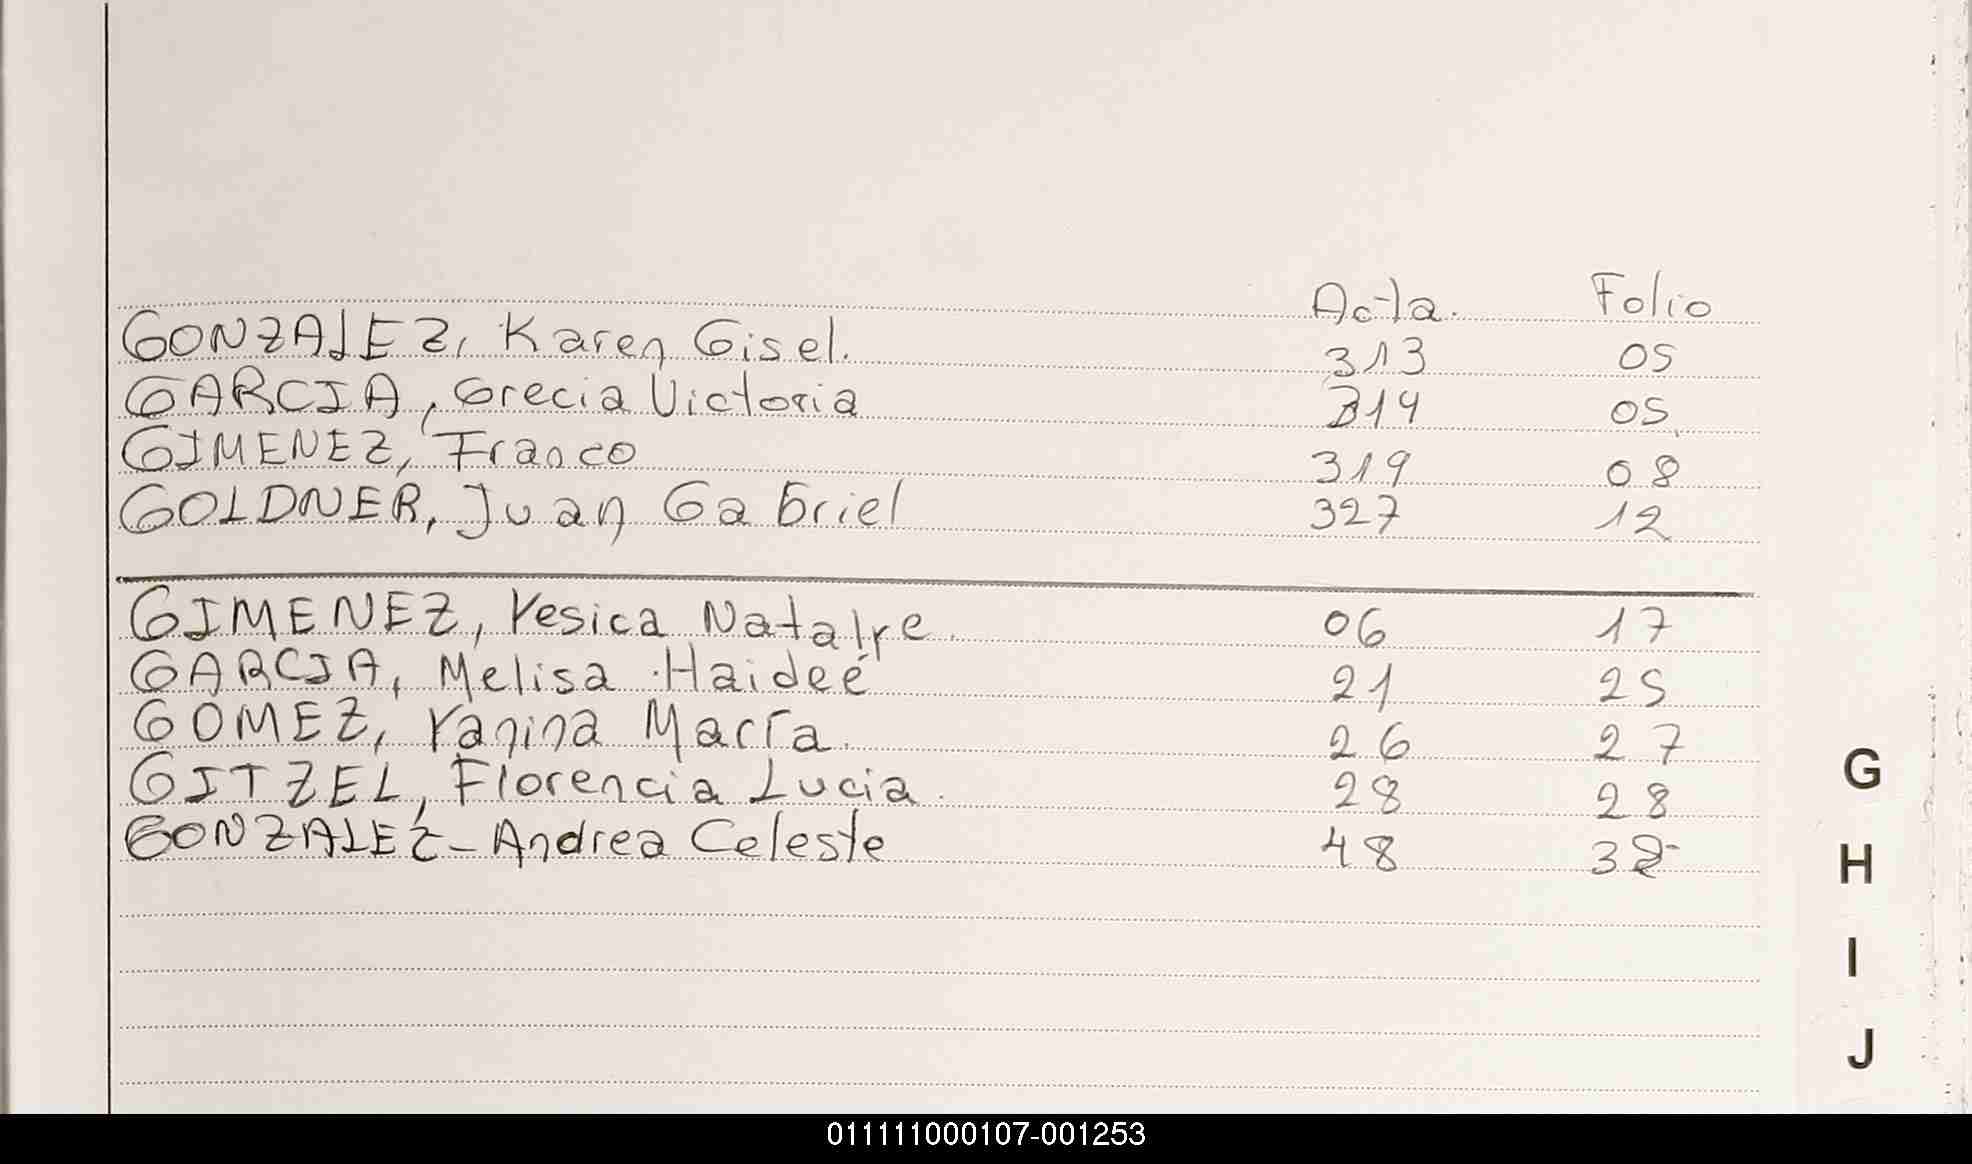 Acta. Folio
GONZALEZ, Karen Gisel. 313 05
GARCIA, Grecia Victoria 314 05
GIMENEZ, Franco 319 08
GOLDNER, Juan Gabriel 327 12
GIMENEZ, Yesica Natalye. 06 17
GARCIA, Melisa Haideé 21 25
GOMEZ, Yanina María. 26 27
GITZEL, Florencia Lucia. 28 28
GONZALEZ - Andrea Celeste 48 38
G
H
I
J
011111000107-001253